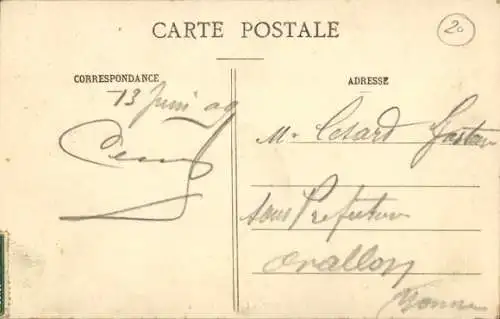 CARTE POSTALE
20
CORRESPONDANCE
ADRESSE
13 Juin 09
Mr Cesard Gaston
Sous Prefecture
Avallon
Yonne